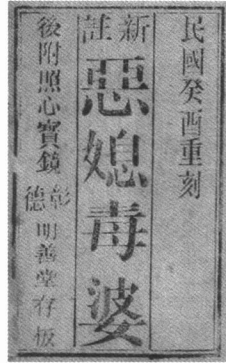 民國癸酉重刻
新註
惡媳毒婆
後附照心寶鏡
彰德明善堂存板